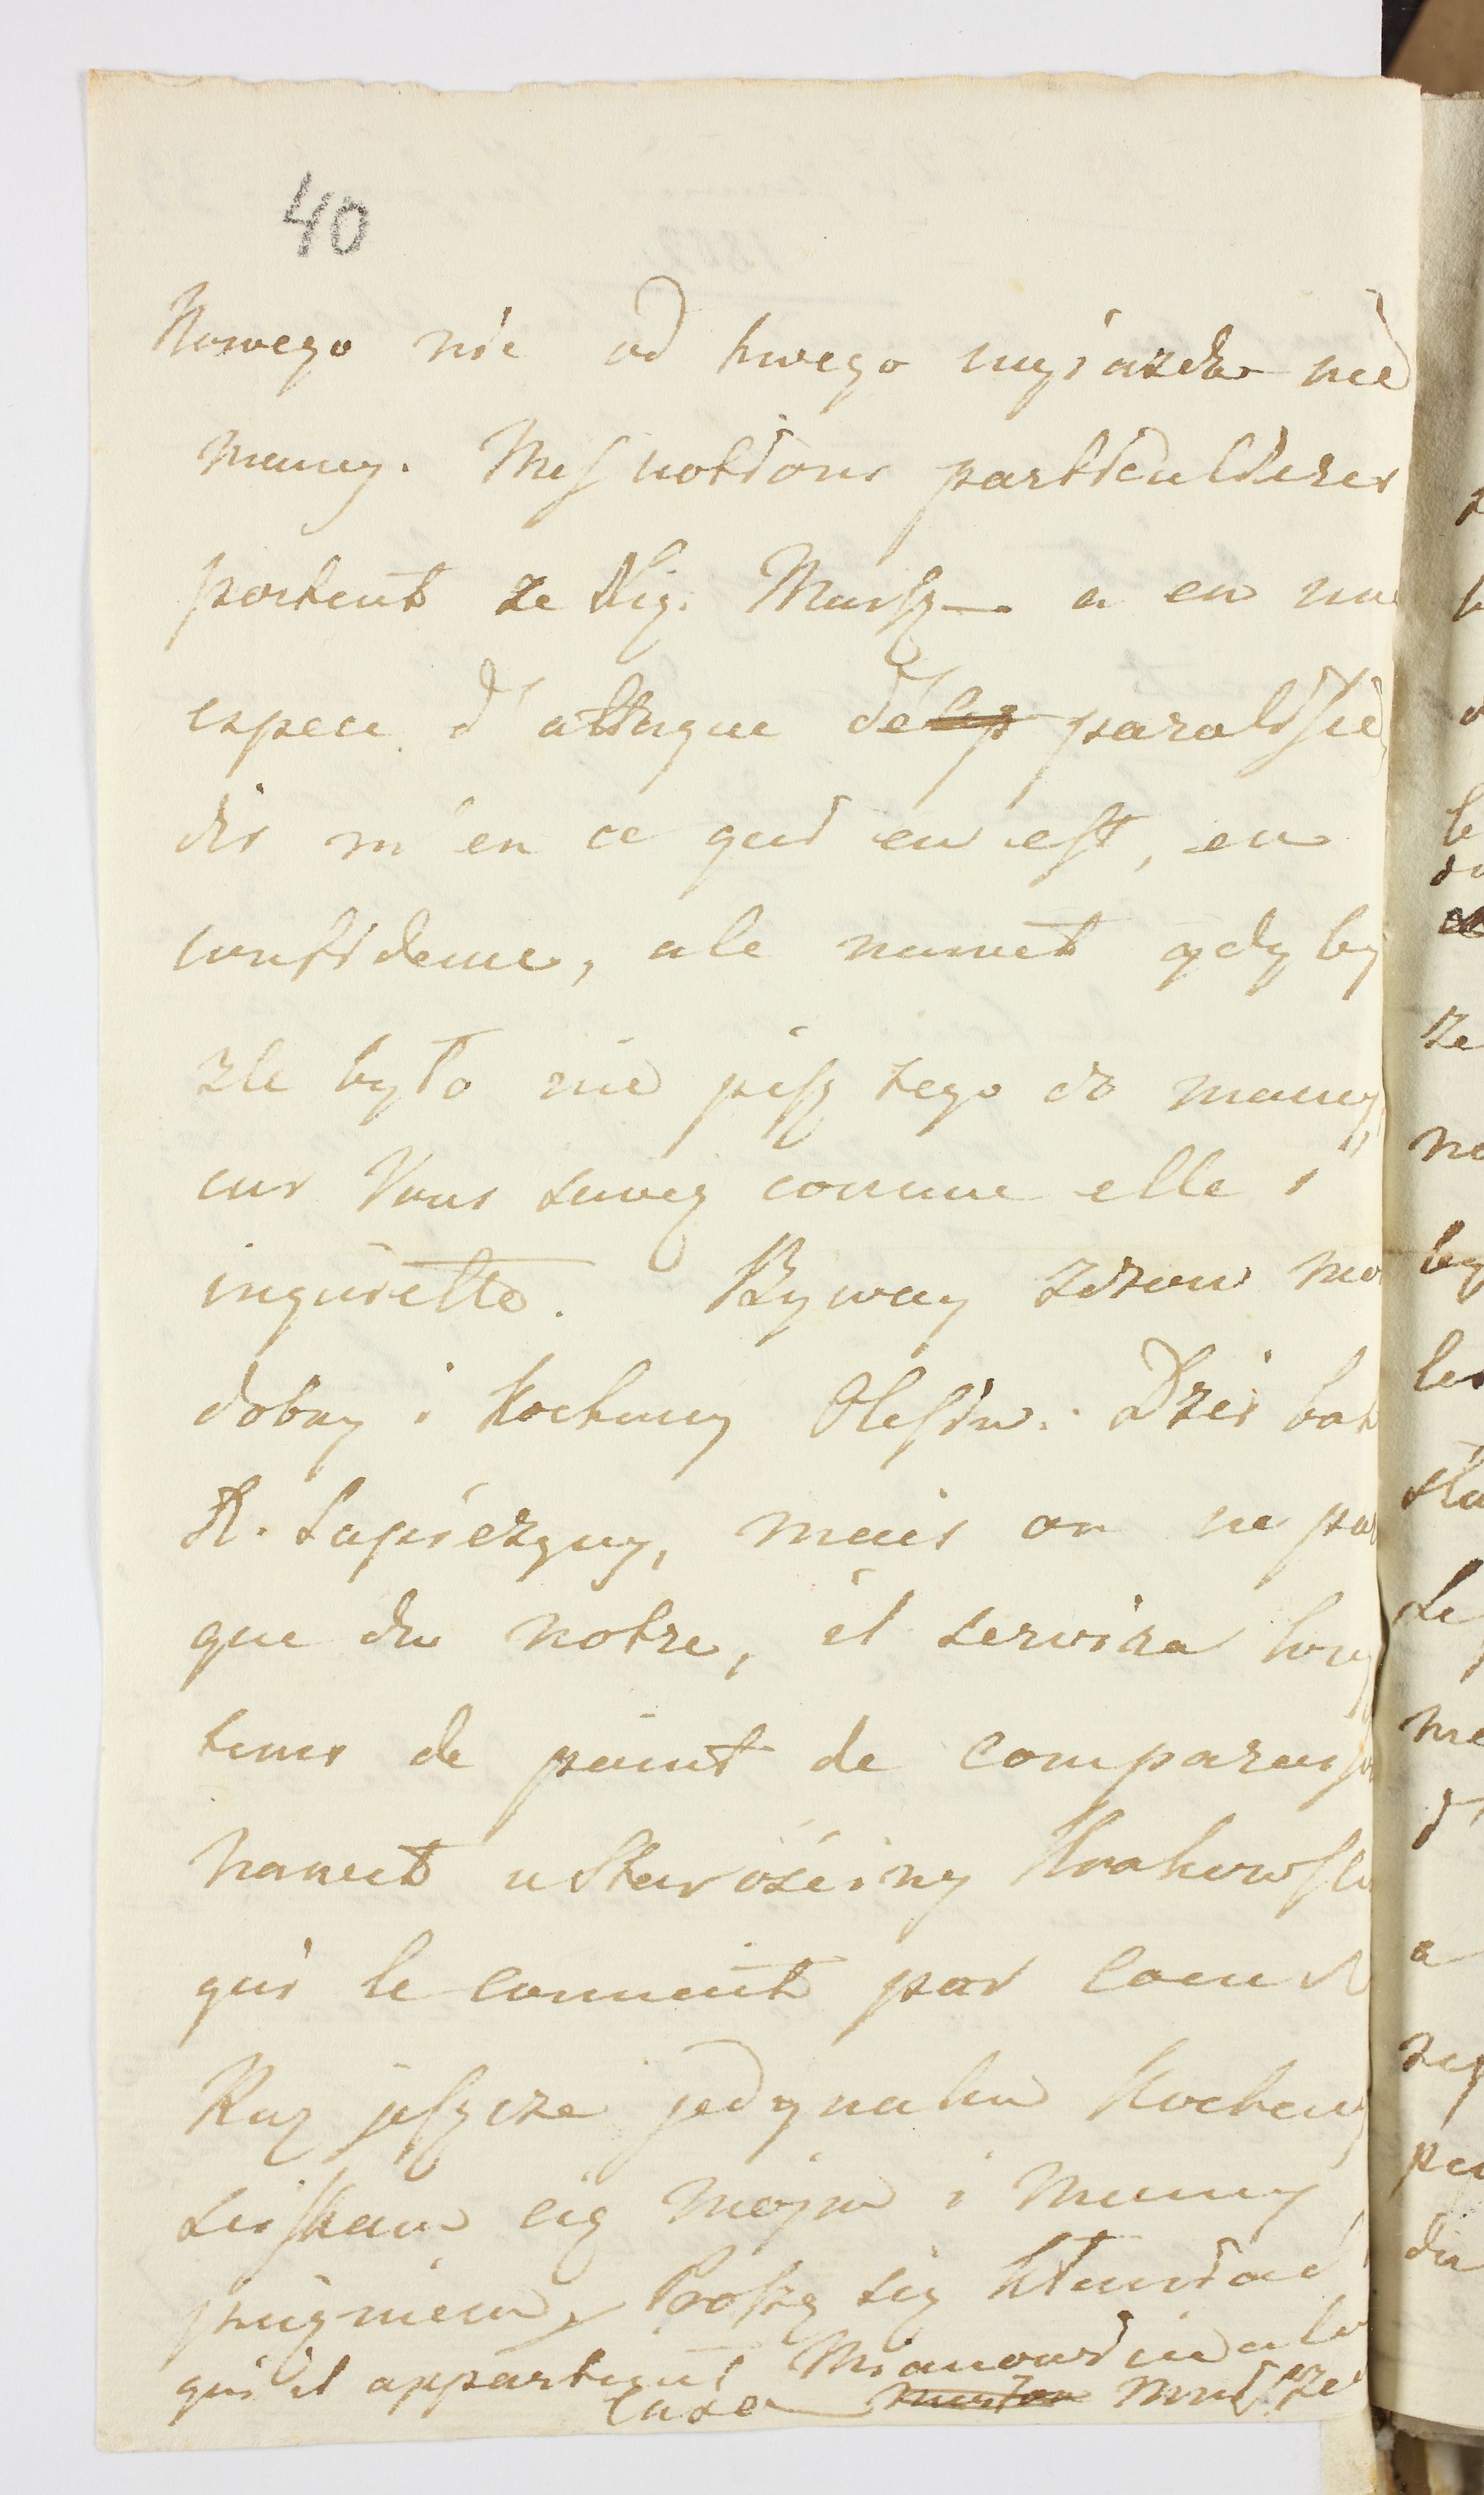 40
Nowego nic od twego wyiazdu nie
mamy. Mes notions particulieres
portent ze Xig. Marsz— a eu une
espece d'attaque de paralisie,
dis m'en ce qui en est, en
confidence, ale nawet gdyby
zle było nie pisz tego do mamy,
car Vous savez comme elle s'
inquiette. Byway zdrow mo
dobry i kochany Olesiu. Dzis bal
X. Sapiezyny, mais on ne par
que du notre, il servira long
tems de point de comparaiso
nawet u Starościny Krakowski
qui le connait par coeur
Raz jeszcze jedynaku kochany
sciskam cię moim i Mamy
Proszę się kłaniać
qui il appartient Mianowicie